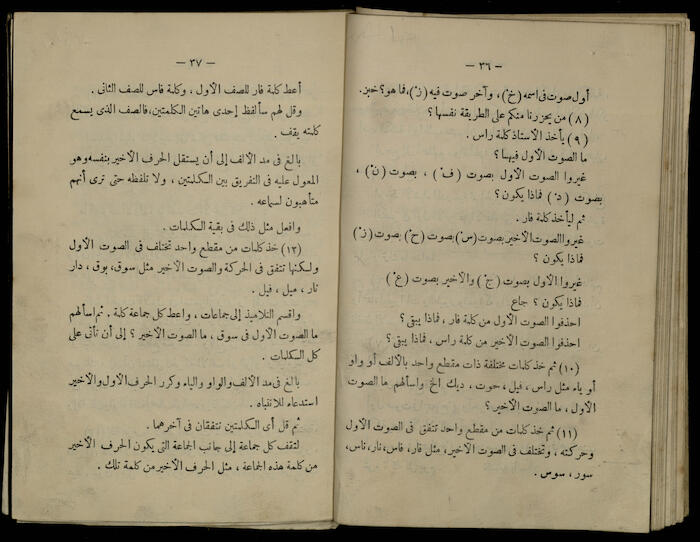 — ٣٦ —
أول صوت فى اسمه (خْ) ، وآخر صوت فيه (زْ)، فما هو؟ خبز.
(٨) من يحزرنا منكم على الطريقة نفسها ؟
(٩) يأخذ الأستاذ كلمة راس .
ما الصوت الأول فيها ؟
غيروا الصوت الأول بصوت (فْ) ، بصوت (نْ) ،
بصوت (دْ) فماذا يكون ؟
ثم ليأخذ كلمة فار .
غيروا الصوت الأخير بصوت (سْ) بصوت (حْ) بصوت (زْ)
فماذا يكون ؟
غيروا الأول بصوت (جْ) والأخير بصوت (عْ)
فماذا يكون ؟ جاع
احذفوا الصوت الأول من كلمة فار ، فماذا يبقى ؟
احذفوا الصوت الأخير من كلمة راس ، فماذا يبقى ؟
(١٠) ثم خذ كلمات مختلفة ذات مقطع واحد بالألف أو واو
أو ياء مثل راس ، فيل ، حوت ، ديك الخ واسألهم ما الصوت
الأول ، ما الصوت الأخير ؟
(١١) ثم خذ كلمات من مقطع واحد تتفق فى الصوت الأول
وحركته ، وتختلف فى الصوت الأخير ، مثل فار ، فاس ، نار ، ناس ،
سور ، سوس .
— ٣٧ —
أعط كلمة فار للصف الأول ، وكلمة فاس للصف الثانى .
وقل لهم سألفظ إحدى هاتين الكلمتين ، فالصف الذى يسمع
كلمته يقف .
بالغ فى مد الألف إلى أن يستقل الحرف الأخير بنفسه وهو
المعول عليه فى التفريق بين الكلمتين ، ولا تلفظه حتى ترى أنهم
متأهبون لسماعه .
وافعل مثل ذلك فى بقية الكلمات .
(١٢) خذ كلمات من مقطع واحد تختلف فى الصوت الأول
ولكنها تتفق فى الحركة والصوت الأخير مثل سوق ، بوق ، دار
نار ، ميل ، فيل .
واقسم التلاميذ إلى جماعات ، واعط كل جماعة كلمة . ثم اسألهم
ما الصوت الأول فى سوق ، ما الصوت الأخير ؟ إلى أن تأتى على
كل الكلمات .
بالغ فى مد الألف والواو والياء وكرر الحرف الأول والأخير
استدعاء للانتباه .
ثم قل أى الكلمتين تتفقان فى آخرهما .
لتقف كل جماعة إلى جانب الجماعة التى يكون الحرف الأخير
من كلمة هذه الجماعة ، مثل الحرف الأخير من كلمة تلك .